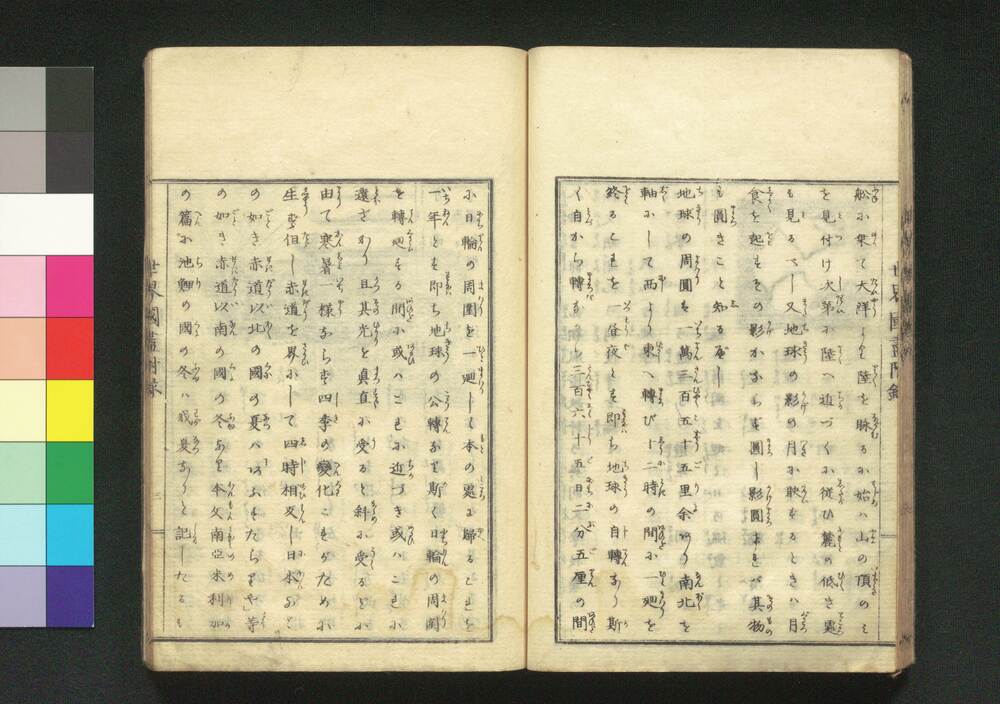 舩に架て大洋より陸を眺るに始ハ山の頂のミ
を見付け次第に陸へ近づくに從ひ麓の低き處
も見るべし又地球の影の月に映をるときハ月
食を起すその影かならず圓し影圓ければ其物
も圓きこと知る可し
地球の周圓を一萬三百五十五里余あり南北を
軸にして西より東へ轉び十二時の間に一廻を
終るこれを一昼夜とす即ち地球の自轉なり斯
く自から轉ながら三百六十五日二分五厘の間
に日輪の周圍を一廻し本の處に歸るこれを
一年とす即ち地球の公轉なり斯く日輪の周圍
を轉廻をる間に或ハこれに近づき或ハこれに
遠ざかり且其光を真直に受ると斜に受るとに
由て寒暑一様ならず四季の變化これがために
生ず但し赤道を界にして四時相反し日本など
の如き赤道以北の國の夏ハ
の如き赤道以南の國の冬なり本文南亞米利加
の篇に池鯉の國の冬ハ我夏なりと記したるも
世界國盡附録
世界國盡附録